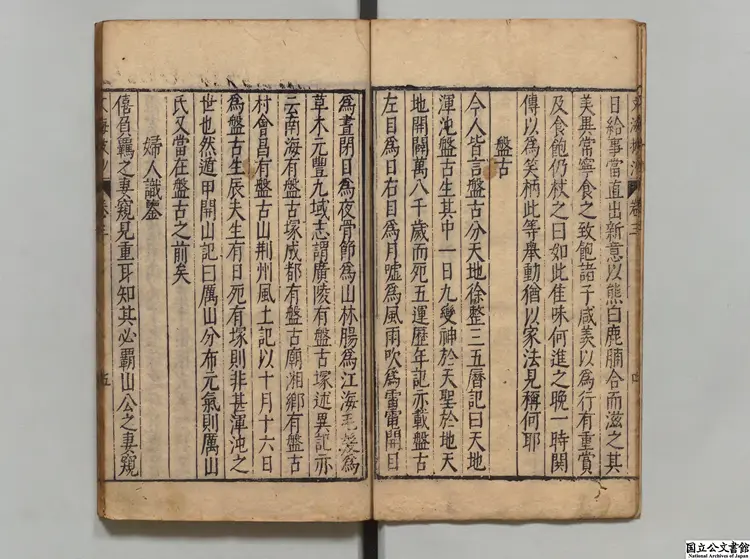 日給事當直出新意以熊白鹿腩合而滋之其
美異常寧食之致飽諸子咸美以為行有重賞
及食飽仍杖之曰如此佳味何進之晚一時閧
傳以為笑柄此等舉動猶以家法見稱何耶
盤古
今人皆言盤古分天地徐整三五曆記曰天地
渾沌盤古生其中一日九變神於天聖於地天
地開闢萬八千歲而死五運歷年記亦載盤古
左目為日右目為月噓為風雨吹為雷電開目
為晝閉目為夜骨節為山林腸為江海毛髮為
草木元豐九域志謂廣陵有盤古塚述異記亦
云南海有盤古塚成都有盤古廟湘鄉有盤古
村會昌有盤古山荆州風土記以十月十六日
為盤古生辰夫生有日死有塚則非甚渾沌之
世也然遁甲開山記曰厲山分布元氣則厲山
氏又當在盤古之前矣
婦人識鑒
僖負羈之妻窺見重耳知其必霸山公之妻窺
卷三
四
五
国立公文書館
National Archives of Japan